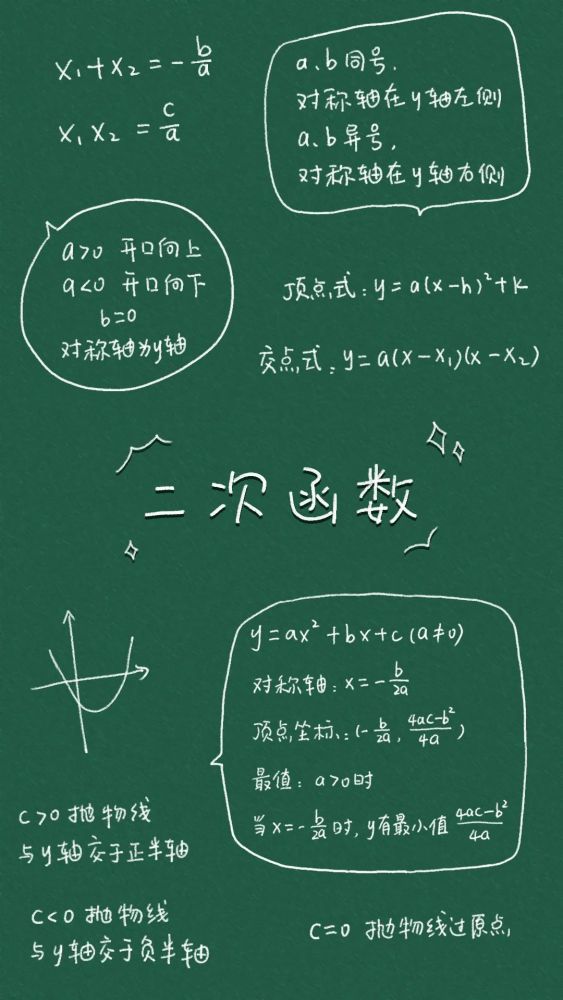 x₁+x₂=-b/a
x₁x₂=c/a
a、b同号,
对称轴在y轴左侧
a、b异号,
对称轴在y轴右侧
a>0 开口向上
a<0 开口向下
b=0
对称轴为y轴
顶点式:y=a(x-h)²+k
交点式:y=a(x-x₁)(x-x₂)
二次函数
y=ax²+bx+c(a≠0)
对称轴:x=-b/2a
顶点坐标:(-b/2a, 4ac-b²/4a)
最值:a>0时
当x=-b/2a时,y有最小值 4ac-b²/4a
c>0 抛物线
与y轴交于正半轴
c<0 抛物线
与y轴交于负半轴
c=0 抛物线过原点